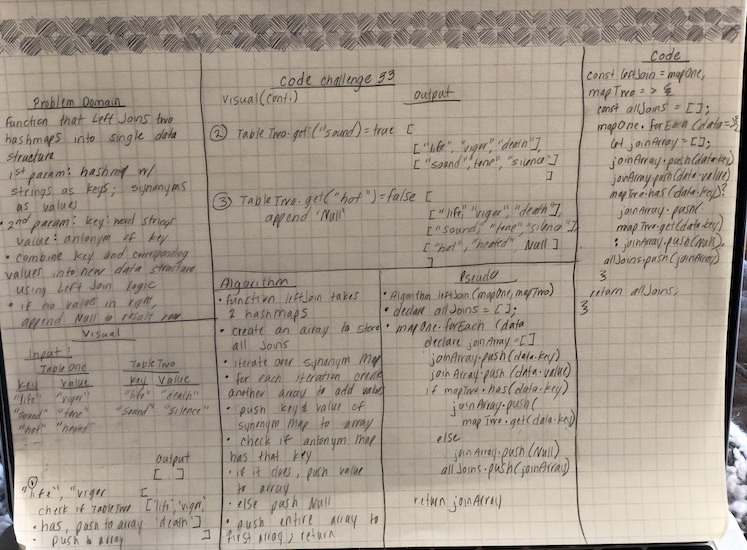 Code challenge 33
Problem Domain
Function that Left Joins two
hashmaps into single data
structure
1st param: hashmap w/
strings as keys; synonyms
as values
• 2nd param: key: word strings
value: antonym of key
• combine key and corresponding
values into new data structure
using Left Join logic
• if no values in right,
append Null to result row
Visual
Input:
Table One Table Two
Key Value Key Value
"life" "vigor" "life" "death"
"sound" "tone" "sound" "silence"
"hot" "heated"
output
[ ]
①
"life", "vigor [
check if Table Two ["life", "vigor,
• has, push to array 'death']
• push to array ]
Visual (cont.) output
② Table Two.get("sound)=true [
["life", "vigor", "death"],
["sound", tone", "silence"]
]
③ Table Two.get("hot")=false [
append 'Null'
["life", "vigor", "death"],
["sound, "tone", "silence"],
["hot", "heated", Null ]
]
Algorithm
• function leftJoin takes
2 hashmaps
• create an array to store
all joins
• iterate over synonym map
• for each iteration create
another array to add values
• push key & value of
synonym map to array
• check if antonym map
has that key
• if it does, push value
to array
• else push Null
• push entire array to
first array, return
Pseudo
• Algorithm leftJoin (mapOne, mapTwo)
• declare allJoins = [];
• mapOne.forEach (data
declare joinArray = []
joinArray.push(data.key)
joinArray.push (data.value)
if mapTwo.has(data.key)
joinArray.push(
mapTwo.get(data.key)
else
joinArray.push(Null)
allJoins.push(joinArray)
return joinArray
Code
const leftJoin = mapOne,
mapTwo => {
const allJoins = [];
mapOne.forEach (data => {
let joinArray = [];
joinArray.push(data.key)
joinArray.push(data.value)
mapTwo.has(data.key)?
joinArray.push(
mapTwo.get(data.key)
: joinArray.push(Null),
allJoins.push(joinArray)
}
return allJoins;
}